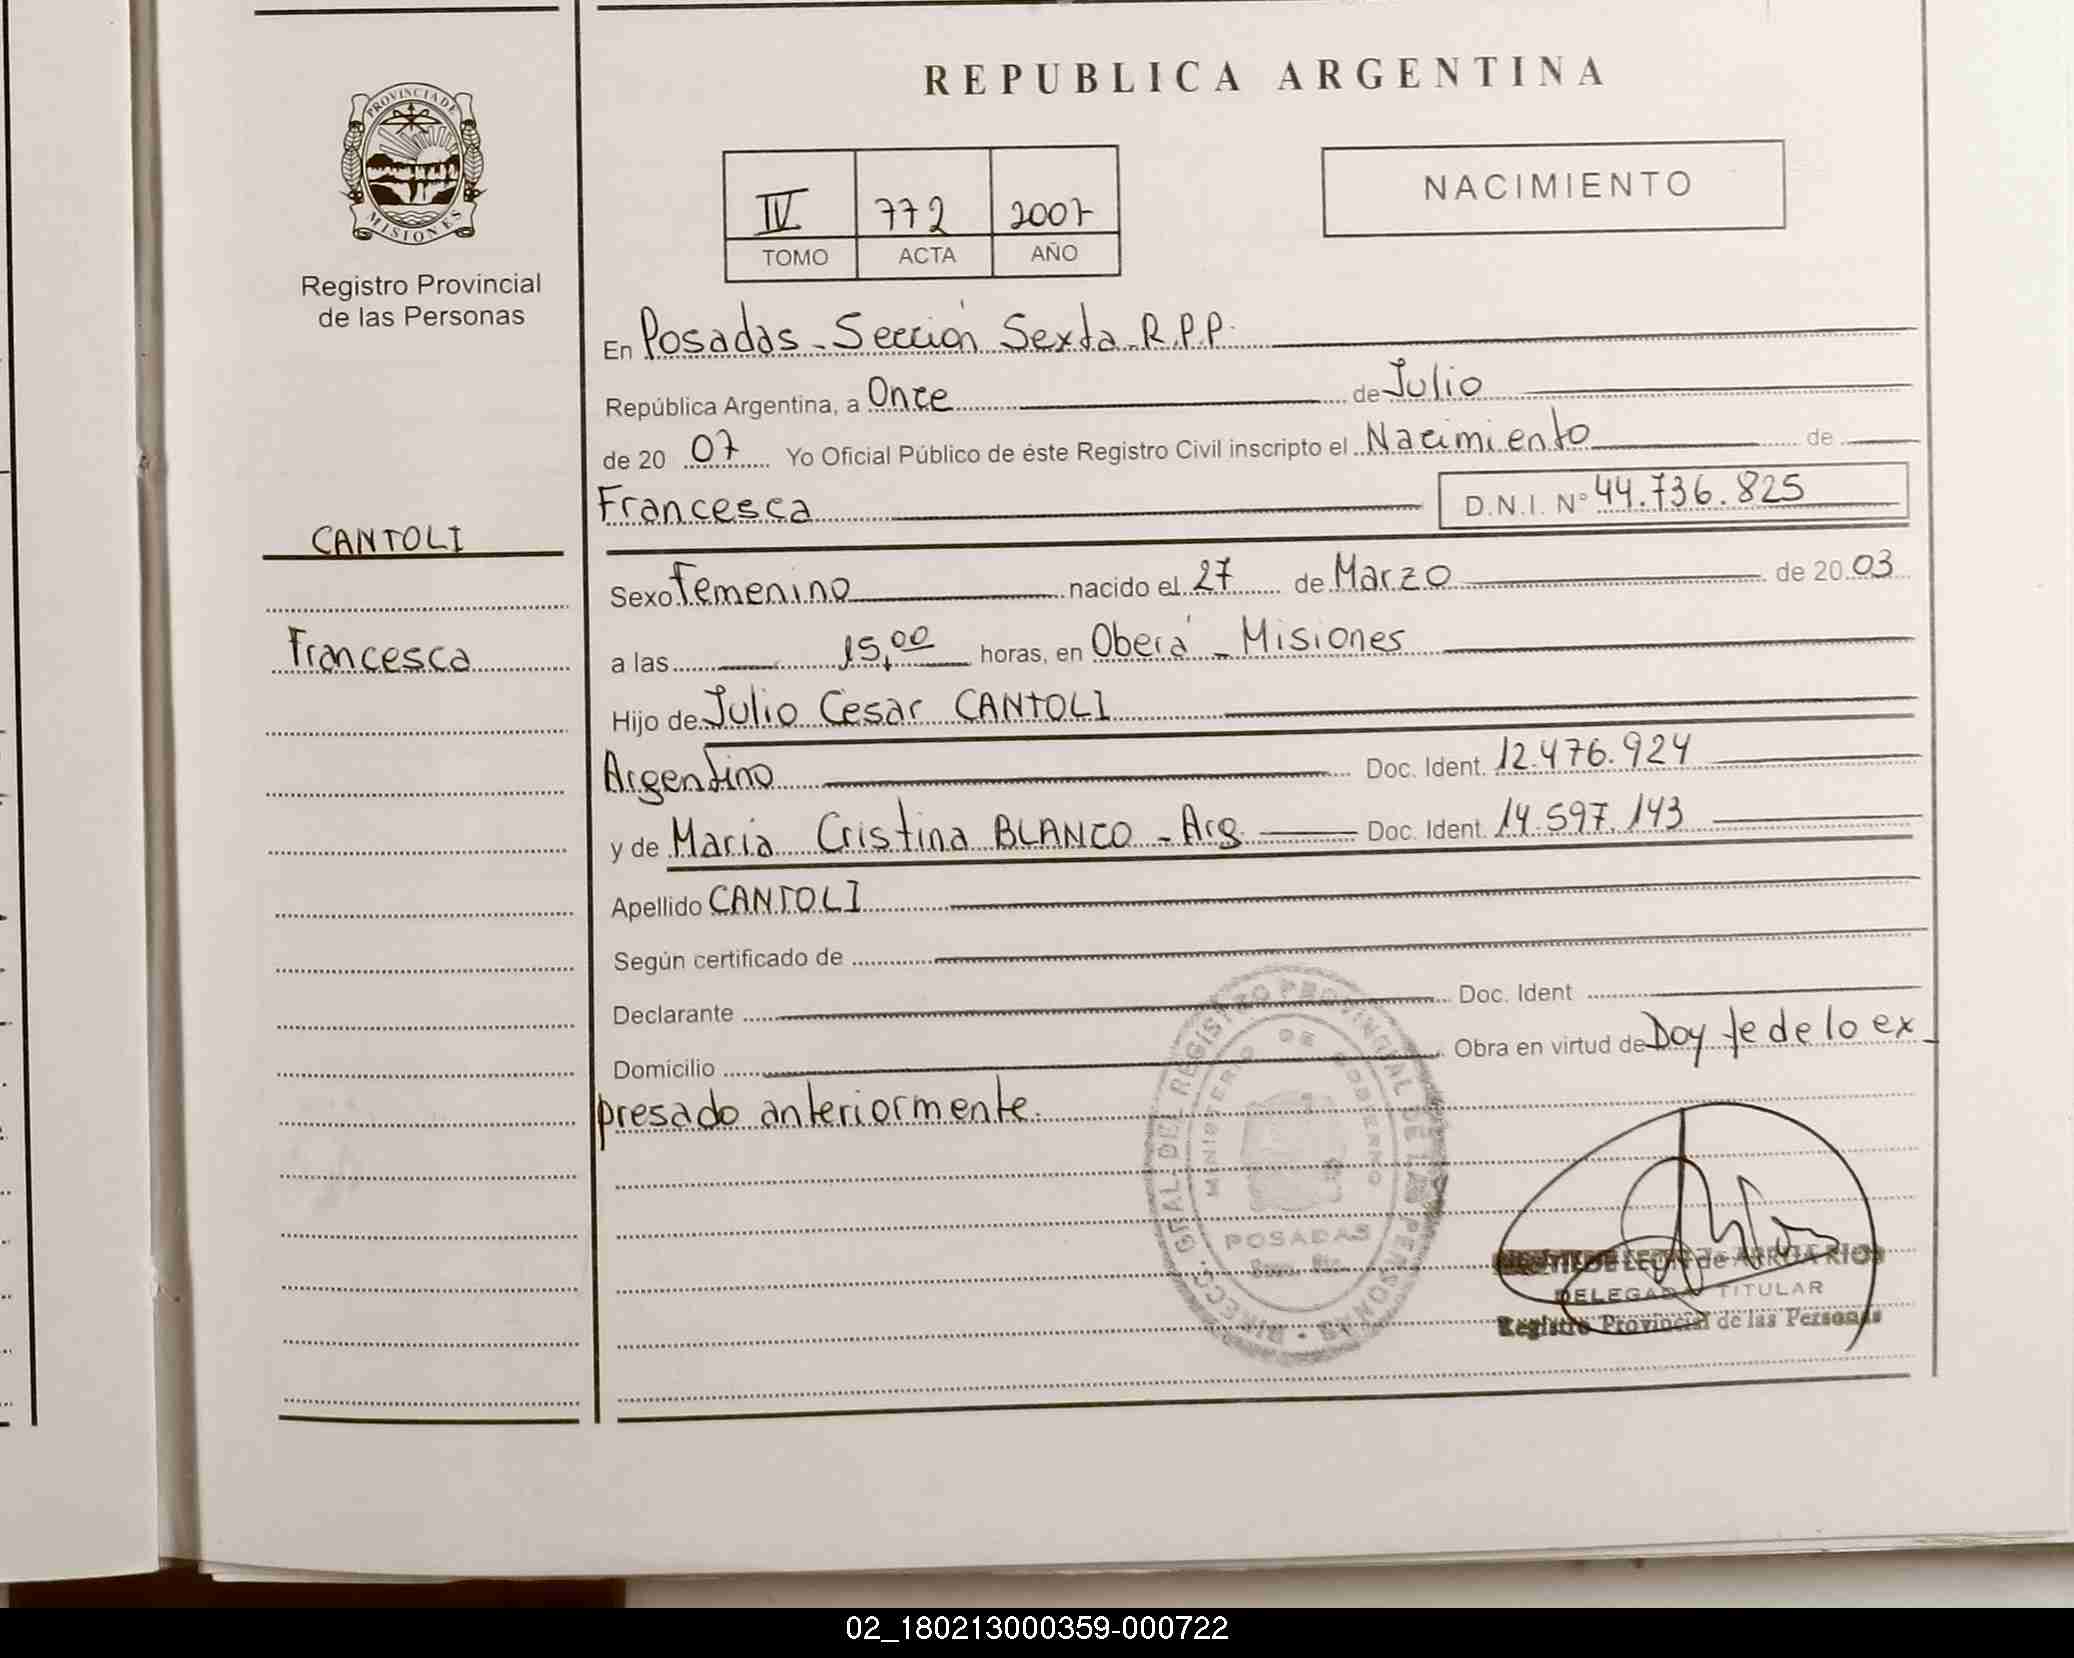 REPUBLICA ARGENTINA
PROVINCIA DE
MISIONES
Registro Provincial
de las Personas
NACIMIENTO
IV 772 2007
TOMO ACTA AÑO
En Posadas - Sección Sexta - R.P.P.
República Argentina, a Once de Julio
de 20 07 Yo Oficial Público de éste Registro Civil inscripto el Nacimiento de
Francesca D.N.I. Nº 44.736.825
CANTOLI
Francesca
Sexo Femenino nacido el 27 de Marzo de 20 03
a las 15,00 horas, en Oberá - Misiones
Hijo de Julio Cesar CANTOLI
Argentino Doc. Ident. 12.476.924
y de Maria Cristina BLANCO - Arg. Doc. Ident. 14.597.143
Apellido CANTOLI
Según certificado de
Declarante Doc. Ident
Domicilio Obra en virtud de Doy fe de lo ex
presado anteriormente.
DIRECC. GRAL. DEL REGISTRO PROVINCIAL DE LAS PERSONAS
MINISTERIO DE GOBIERNO
POSADAS
de ARRUA RIOS
DELEGADA TITULAR
Registro Provincial de las Personas
02_180213000359-000722